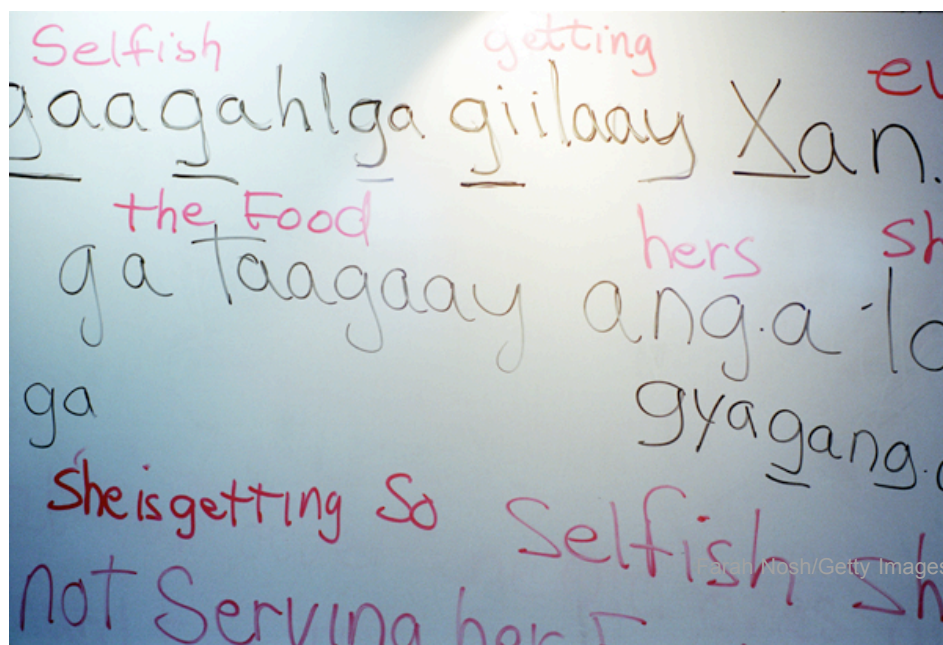 Selfish getting
g̲aag̲ahlg̲a g̲iilaay̲ X̲an.
the Food hers
ga taagaay ang.a
ga gyag̲ang.
She is getting So Selfish
not Serving her
Farah Nosh/Getty Images